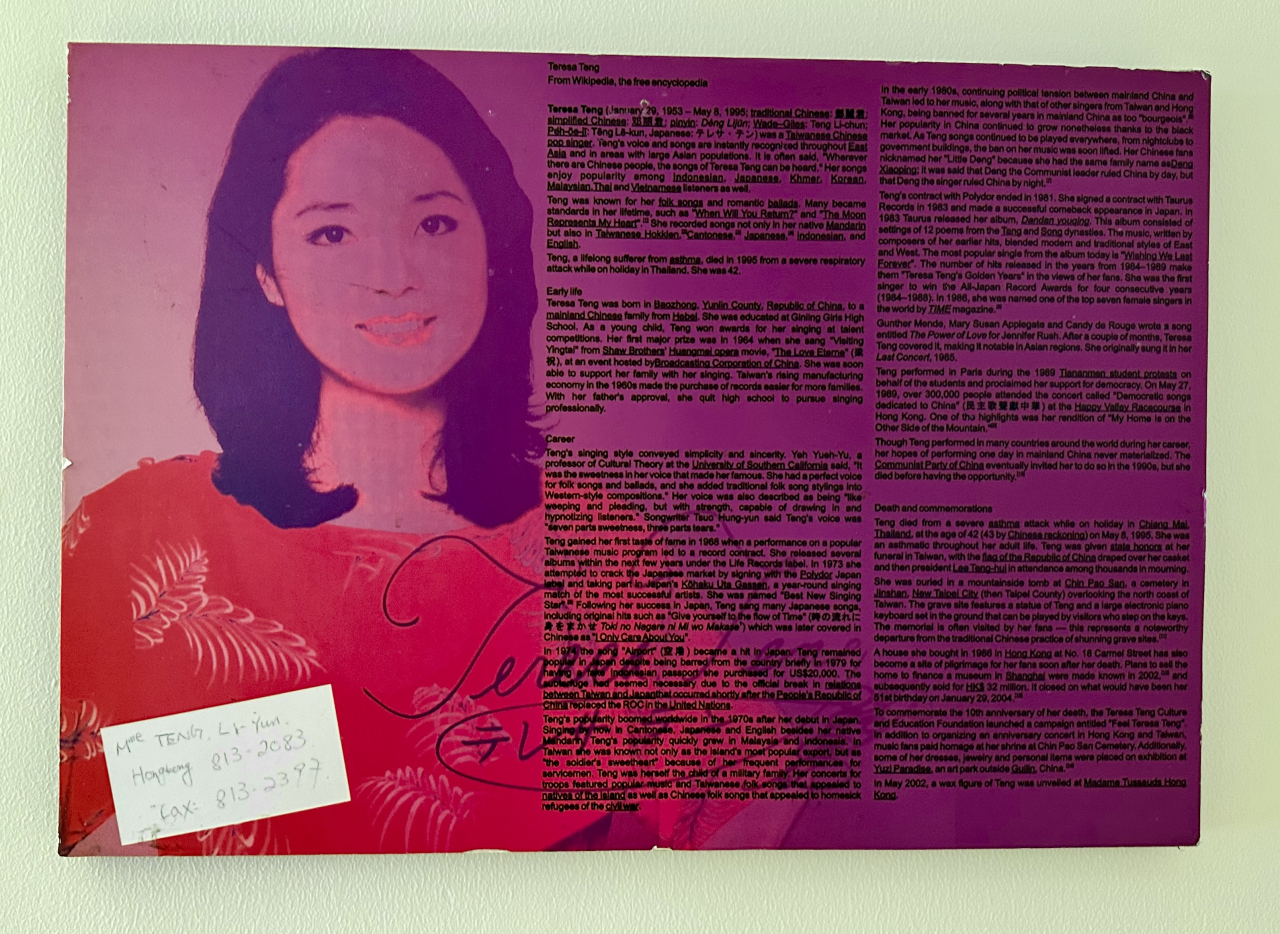 Teresa Teng
From Wikipedia, the free encyclopedia
Teresa Teng (January 29, 1953 – May 8, 1995; traditional Chinese: 鄧麗君;
simplified Chinese: 邓丽君; pinyin: Dèng Lìjūn; Wade–Giles: Teng Li-chun;
Pe̍h-ōe-jī: Tēng Lē-kun, Japanese: テレサ・テン) was a Taiwanese Chinese
pop singer. Teng's voice and songs are instantly recognized throughout East
Asia and in areas with large Asian populations. It is often said, "Wherever
there are Chinese people, the songs of Teresa Teng can be heard." Her songs
enjoy popularity among Indonesian, Japanese, Khmer, Korean,
Malaysian,Thai and Vietnamese listeners as well.
Teng was known for her folk songs and romantic ballads. Many became
standards in her lifetime, such as "When Will You Return?" and "The Moon
Represents My Heart". She recorded songs not only in her native Mandarin
but also in Taiwanese Hokkien, Cantonese, Japanese, Indonesian, and
English.
Teng, a lifelong sufferer from asthma, died in 1995 from a severe respiratory
attack while on holiday in Thailand. She was 42.
Early life
Teresa Teng was born in Baozhong, Yunlin County, Republic of China, to a
mainland Chinese family from Hebei. She was educated at Ginling Girls High
School. As a young child, Teng won awards for her singing at talent
competitions. Her first major prize was in 1964 when she sang "Visiting
Yingtai" from Shaw Brothers' Huangmei opera movie, "The Love Eterne" (梁
祝), at an event hosted byBroadcasting Corporation of China. She was soon
able to support her family with her singing. Taiwan's rising manufacturing
economy in the 1960s made the purchase of records easier for more families.
With her father's approval, she quit high school to pursue singing
professionally.
Career
Teng's singing style conveyed simplicity and sincerity. Yeh Yueh-Yu, a
professor of Cultural Theory at the University of Southern California said, "It
was the sweetness in her voice that made her famous. She had a perfect voice
for folk songs and ballads, and she added traditional folk song stylings into
Western-style compositions." Her voice was also described as being "like
weeping and pleading, but with strength, capable of drawing in and
hypnotizing listeners." Songwriter Tsuo Hung-yun said Teng's voice was
"seven parts sweetness, three parts tears."
Teng gained her first taste of fame in 1968 when a performance on a popular
Taiwanese music program led to a record contract. She released several
albums within the next few years under the Life Records label. In 1973 she
attempted to crack the Japanese market by signing with the Polydor Japan
label and taking part in Japan's Kōhaku Uta Gassen, a year-round singing
match of the most successful artists. She was named "Best New Singing
Star". Following her success in Japan, Teng sang many Japanese songs,
including original hits such as "Give yourself to the flow of Time" (時の流れに
身をまかせ Toki no Nagare ni Mi wo Makase") which was later covered in
Chinese as "I Only Care About You".
In song "Airport" (空港) became a hit in Japan. Teng remained
popular in Japan despite being barred from the country briefly in 1979 for
Indonesian passport she purchased for US$20,000. The
subterfuge had seemed necessary due to the official break in relations
between Taiwan and Japanthat occurred shortly after the People's Republic of
China replaced the ROC in the United Nations.
Teng's popularity boomed worldwide in the 1970s after her debut in Japan.
Singing by now in Cantonese, Japanese and English besides her native
Mandarin Teng's popularity quickly grew in Malaysia and Indonesia. In
Taiwan she was known not only as the island's most popular export, but as
"the soldier's sweetheart" because of her frequent performances for
servicemen. Teng was herself the child of a military family. Her concerts for
troops featured popular music and Taiwanese folk songs that appealed to
natives of the island as well as Chinese folk songs that appealed to homesick
refugees of the civil war.
In the early 1980s, continuing political tension between mainland China and
Taiwan led to her music, along with that of other singers from Taiwan and Hong
Kong, being banned for several years in mainland China as too "bourgeois".
Her popularity in China continued to grow nonetheless thanks to the black
market. As Teng songs continued to be played everywhere, from nightclubs to
government buildings, the ban on her music was soon lifted. Her Chinese fans
nicknamed her "Little Deng" because she had the same family name asDeng
Xiaoping; it was said that Deng the Communist leader ruled China by day, but
that Deng the singer ruled China by night.
Teng's contract with Polydor ended in 1981. She signed a contract with Taurus
Records in 1983 and made a successful comeback appearance in Japan. In
1983 Taurus released her album, Dandan youqing. This album consisted of
settings of 12 poems from the Tang and Song dynasties. The music, written by
composers of her earlier hits, blended modern and traditional styles of East
and West. The most popular single from the album today is "Wishing We Last
Forever". The number of hits released in the years from 1984–1989 make
them "Teresa Teng's Golden Years" in the views of her fans. She was the first
singer to win the All-Japan Record Awards for four consecutive years
(1984–1988). In 1986, she was named one of the top seven female singers in
the world by TIME magazine.
Gunther Mende, Mary Susan Applegate and Candy de Rouge wrote a song
entitled The Power of Love for Jennifer Rush. After a couple of months, Teresa
Teng covered it, making it notable in Asian regions. She originally sung it in her
Last Concert, 1985.
Teng performed in Paris during the 1989 Tiananmen student protests on
behalf of the students and proclaimed her support for democracy. On May 27,
1989, over 300,000 people attended the concert called "Democratic songs
dedicated to China" (民主歌聲獻中華) at the Happy Valley Racecourse in
Hong Kong. One of the highlights was her rendition of "My Home is on the
Other Side of the Mountain."
Though Teng performed in many countries around the world during her career,
her hopes of performing one day in mainland China never materialized. The
Communist Party of China eventually invited her to do so in the 1990s, but she
died before having the opportunity.
Death and commemorations
Teng died from a severe asthma attack while on holiday in Chiang Mai,
Thailand, at the age of 42 (43 by Chinese reckoning) on May 8, 1995. She was
an asthmatic throughout her adult life. Teng was given state honors at her
funeral in Taiwan, with the flag of the Republic of China draped over her casket
and then president Lee Teng-hui in attendance among thousands in mourning.
She was buried in a mountainside tomb at Chin Pao San, a cemetery in
Jinshan, New Taipei City (then Taipei County) overlooking the north coast of
Taiwan. The grave site features a statue of Teng and a large electronic piano
keyboard set in the ground that can be played by visitors who step on the keys.
The memorial is often visited by her fans — this represents a noteworthy
departure from the traditional Chinese practice of shunning grave sites.
A house she bought in 1986 in Hong Kong at No. 18 Carmel Street has also
become a site of pilgrimage for her fans soon after her death. Plans to sell the
home to finance a museum in Shanghai were made known in 2002, and
subsequently sold for HK$ 32 million. It closed on what would have been her
51st birthday on January 29, 2004.
To commemorate the 10th anniversary of her death, the Teresa Teng Culture
and Education Foundation launched a campaign entitled "Feel Teresa Teng".
In addition to organizing an anniversary concert in Hong Kong and Taiwan,
music fans paid homage at her shrine at Chin Pao San Cemetery. Additionally,
some of her dresses, jewelry and personal items were placed on exhibition at
Yuzi Paradise, an art park outside Guilin, China.
In May 2002, a wax figure of Teng was unveiled at Madame Tussauds Hong
Kong.
Teresa Teng
テレサ
Mme TENG. Li-Yun.
Hongkong 813-2083
Fax: 813-2397